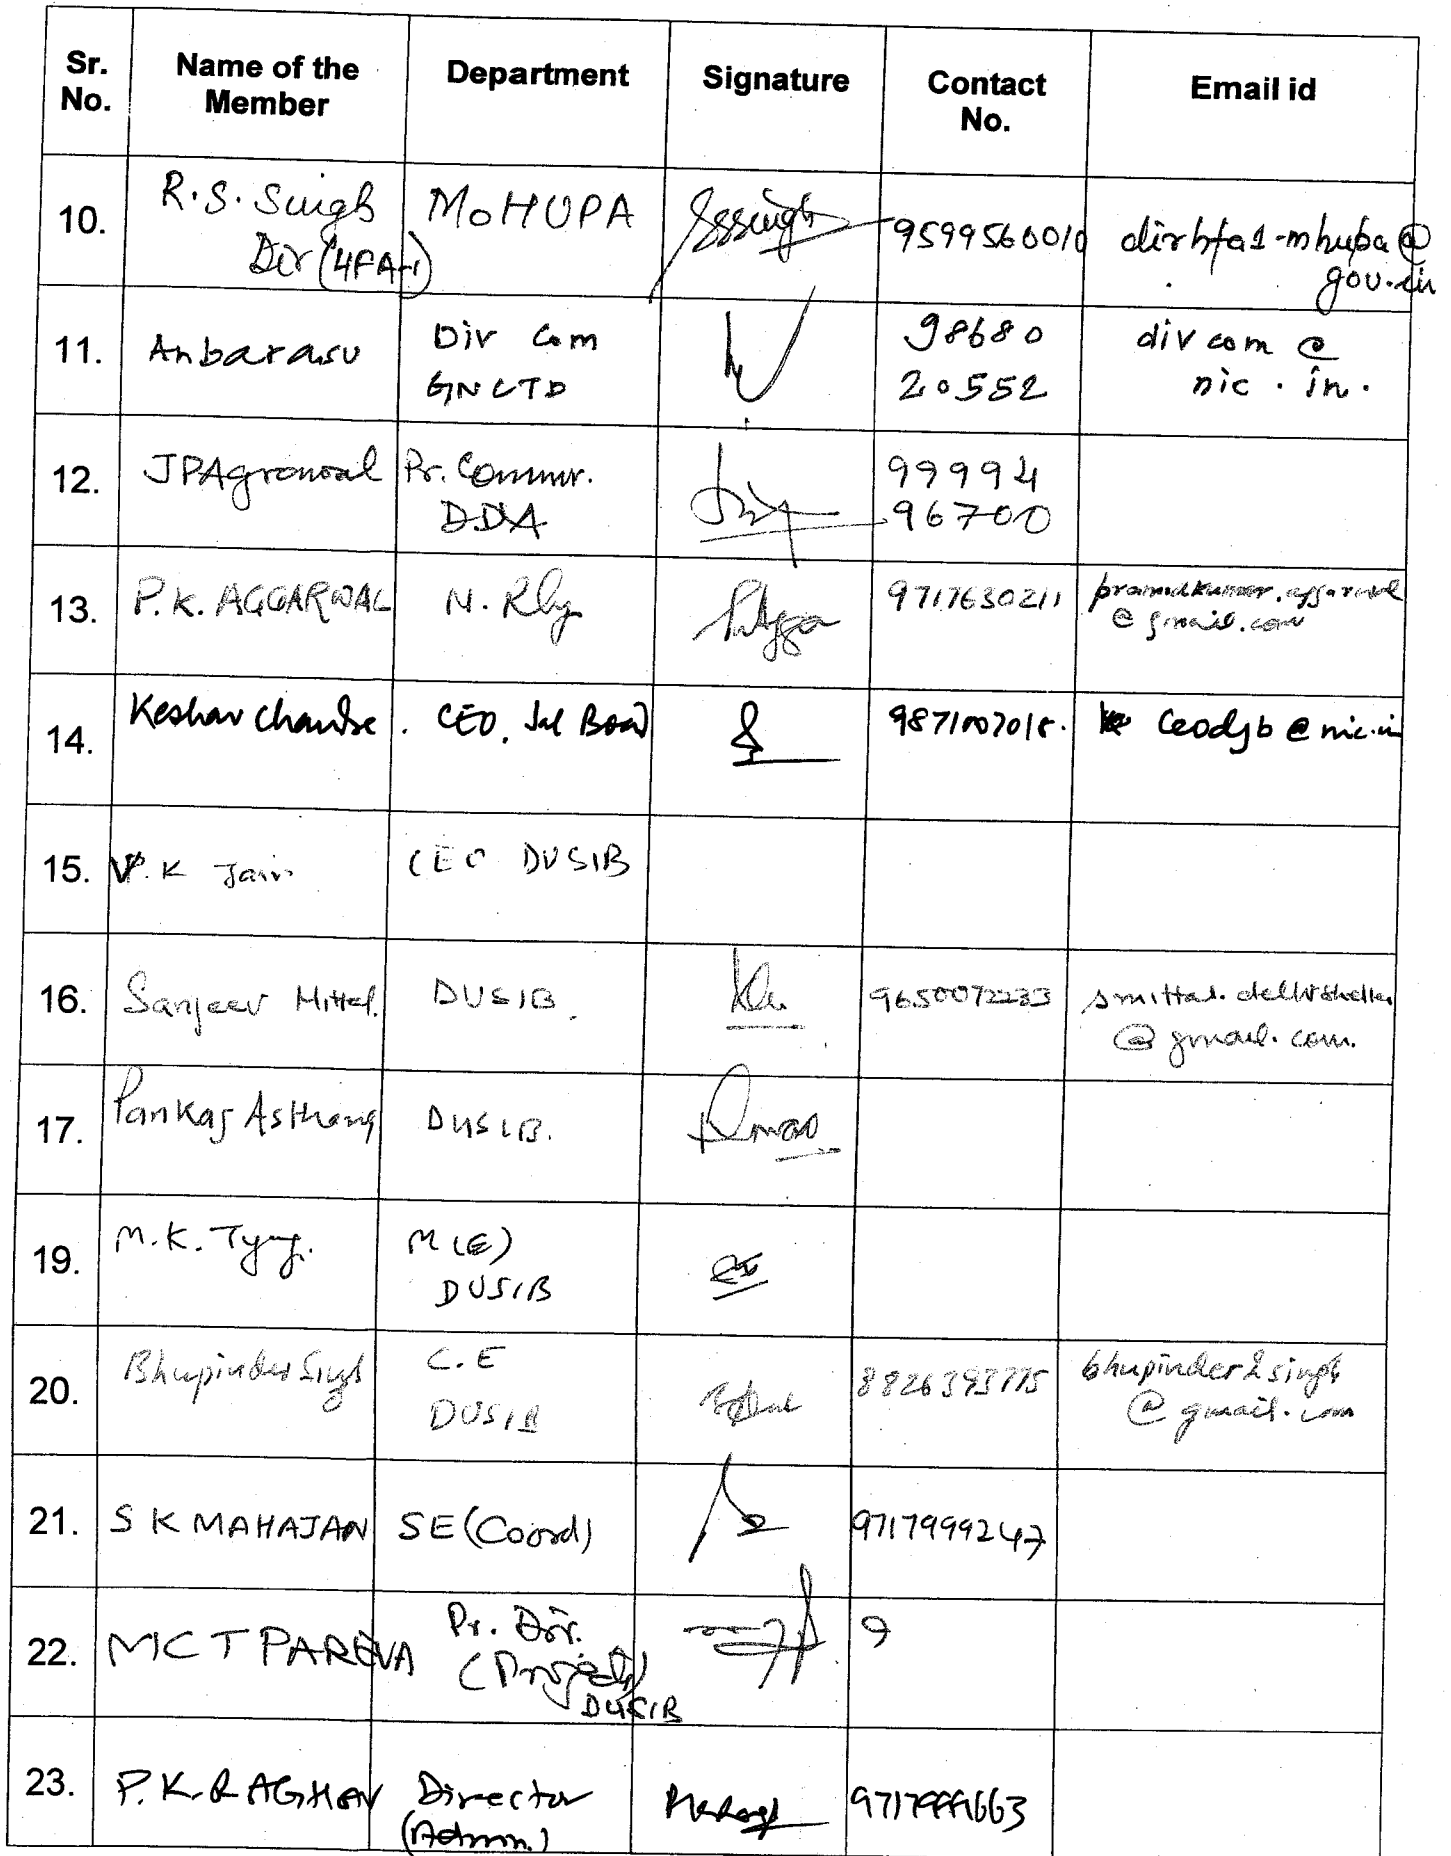 Sr. No. Name of the Member Department Signature Contact No. Email id
10. R.S. Singh MoHUPA SSSingh 9599560010 dirhfa1-mhupa@
Dir (HFA-1) gov.in
11. Anbarasu Div Com 98680 divcom @
GNCTD 20552 nic.in.
12. JPAgrawal Pr. Commr. 99994
DDA 96700
13. P.K. AGGARWAL N. Rly 9717630211 pramodkumar.aggarwal
@gmail.com
14. Keshav Chandra. CEO, Jal Board 9871007018. Ceodjb@nic.in
15. V.K Jain CEO DUSIB
16. Sanjeev Mittal. DUSIB. 9650072233 smittal.delhishelter
@gmail.com.
17. Pankaj Asthana DUSIB.
19. M.K. Tyagi. M(E)
DUSIB
20. Bhupinder Singh C.E 8826393775 bhupinder2singh
DUSIB @gmail.com
21. S K MAHAJAN SE(Coord) 9717999247
22. MCT PAREVA Pr. Dir. 9
(Projects)
DUSIB
23. P.K. RAGHAV Director 9717999663
(Admn.)